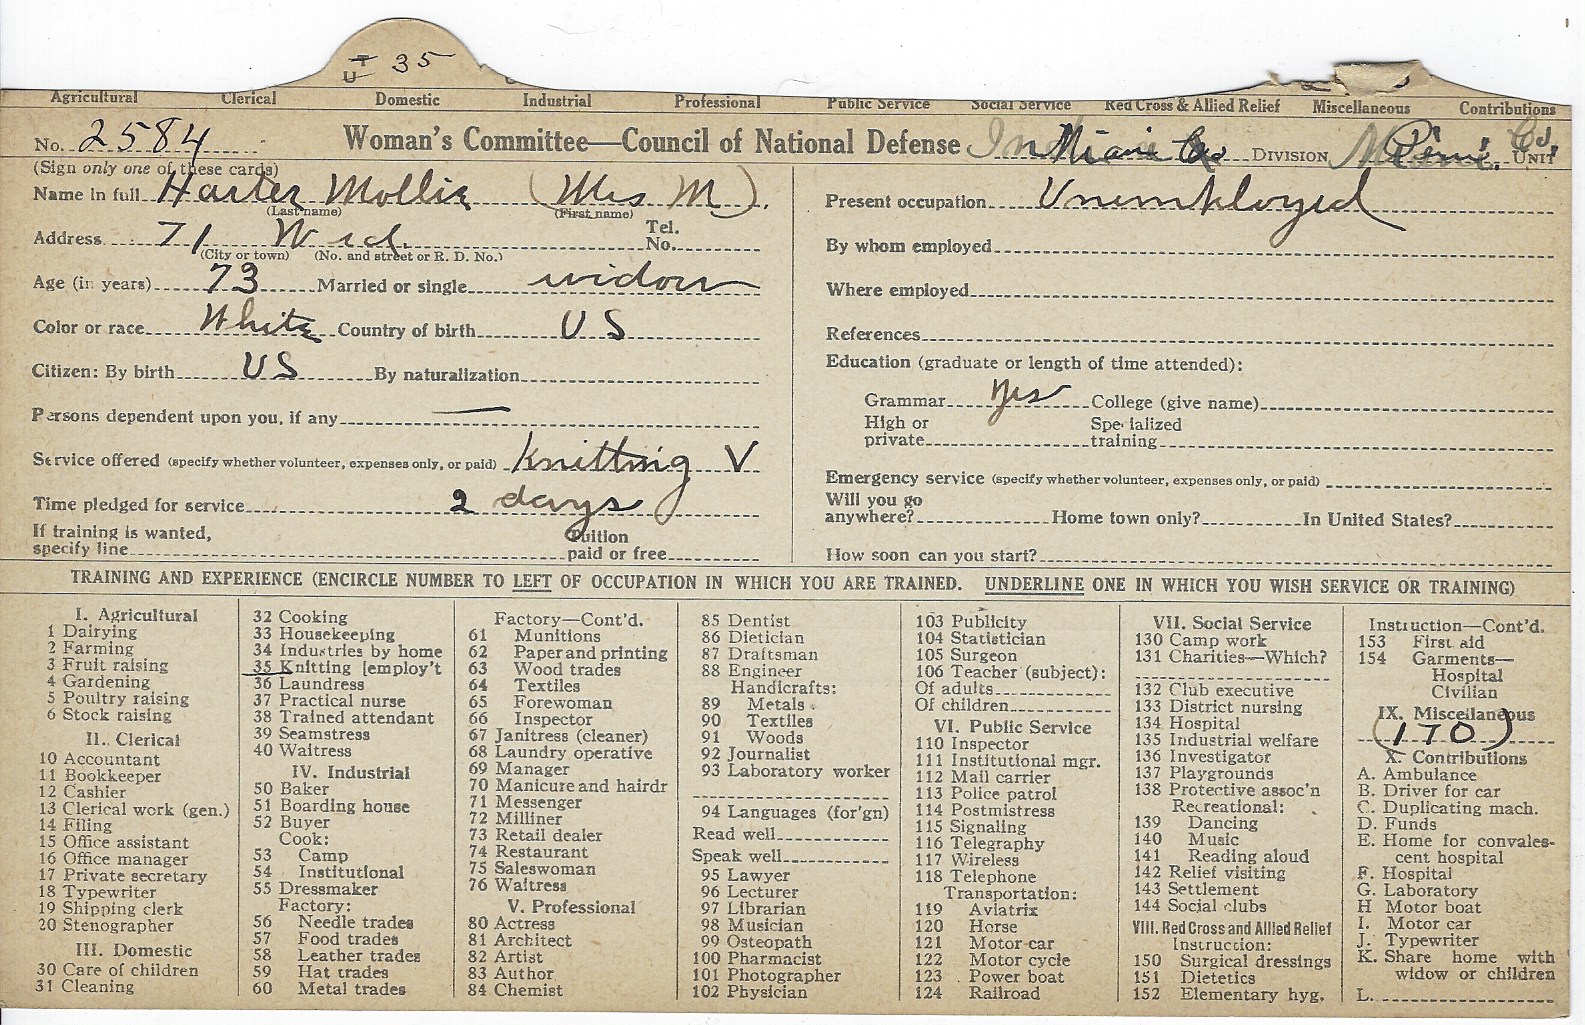 T
U 35
Agricultural Clerical Domestic Industrial Professional Public Service Social Service Red Cross & Allied Relief Miscellaneous Contributions
No. 2584 Woman's Committee—Council of National Defense Miami Co DIVISION Co. UNIT
(Sign only one of these cards)
Name in full Harter Mollie (Mrs M).
(Last name) (First name)
Address 71 W 3rd. Tel. No.
(City or town) (No. and street or R. D. No.)
Age (in years) 73 Married or single widow
Color or race White Country of birth US
Citizen: By birth US By naturalization
Persons dependent upon you, if any —
Service offered (specify whether volunteer, expenses only, or paid) Knitting V
Time pledged for service 2 days
If training is wanted, specify line Tuition paid or free
Present occupation Unemployed
By whom employed
Where employed
References
Education (graduate or length of time attended):
Grammar Yes College (give name)
High or private Specialized training
Emergency service (specify whether volunteer, expenses only, or paid)
Will you go anywhere? Home town only? In United States?
How soon can you start?
TRAINING AND EXPERIENCE (ENCIRCLE NUMBER TO LEFT OF OCCUPATION IN WHICH YOU ARE TRAINED. UNDERLINE ONE IN WHICH YOU WISH SERVICE OR TRAINING)
I. Agricultural
1 Dairying
2 Farming
3 Fruit raising
4 Gardening
5 Poultry raising
6 Stock raising
II. Clerical
10 Accountant
11 Bookkeeper
12 Cashier
13 Clerical work (gen.)
14 Filing
15 Office assistant
16 Office manager
17 Private secretary
18 Typewriter
19 Shipping clerk
20 Stenographer
III. Domestic
30 Care of children
31 Cleaning
32 Cooking
33 Housekeeping
34 Industries by home
35 Knitting [employ't
36 Laundress
37 Practical nurse
38 Trained attendant
39 Seamstress
40 Waitress
IV. Industrial
50 Baker
51 Boarding house
52 Buyer
Cook:
53 Camp
54 Institutional
55 Dressmaker
Factory:
56 Needle trades
57 Food trades
58 Leather trades
59 Hat trades
60 Metal trades
Factory—Cont'd.
61 Munitions
62 Paper and printing
63 Wood trades
64 Textiles
65 Forewoman
66 Inspector
67 Janitress (cleaner)
68 Laundry operative
69 Manager
70 Manicure and hairdr
71 Messenger
72 Milliner
73 Retail dealer
74 Restaurant
75 Saleswoman
76 Waitress
V. Professional
80 Actress
81 Architect
82 Artist
83 Author
84 Chemist
85 Dentist
86 Dietician
87 Draftsman
88 Engineer
Handicrafts:
89 Metals
90 Textiles
91 Woods
92 Journalist
93 Laboratory worker
94 Languages (for'gn)
Read well
Speak well
95 Lawyer
96 Lecturer
97 Librarian
98 Musician
99 Osteopath
100 Pharmacist
101 Photographer
102 Physician
103 Publicity
104 Statistician
105 Surgeon
106 Teacher (subject):
Of adults
Of children
VI. Public Service
110 Inspector
111 Institutional mgr.
112 Mail carrier
113 Police patrol
114 Postmistress
115 Signaling
116 Telegraphy
117 Wireless
118 Telephone
Transportation:
119 Aviatrix
120 Horse
121 Motor car
122 Motor cycle
123 Power boat
124 Railroad
VII. Social Service
130 Camp work
131 Charities—Which?
132 Club executive
133 District nursing
134 Hospital
135 Industrial welfare
136 Investigator
137 Playgrounds
138 Protective assoc'n
Recreational:
139 Dancing
140 Music
141 Reading aloud
142 Relief visiting
143 Settlement
144 Social clubs
VIII. Red Cross and Allied Relief
Instruction:
150 Surgical dressings
151 Dietetics
152 Elementary hyg.
Instruction—Cont'd.
153 First aid
154 Garments—
Hospital
Civilian
IX. Miscellaneous
(170)
X. Contributions
A. Ambulance
B. Driver for car
C. Duplicating mach.
D. Funds
E. Home for convales-
cent hospital
F. Hospital
G. Laboratory
H Motor boat
I. Motor car
J. Typewriter
K. Share home with
widow or children
L.